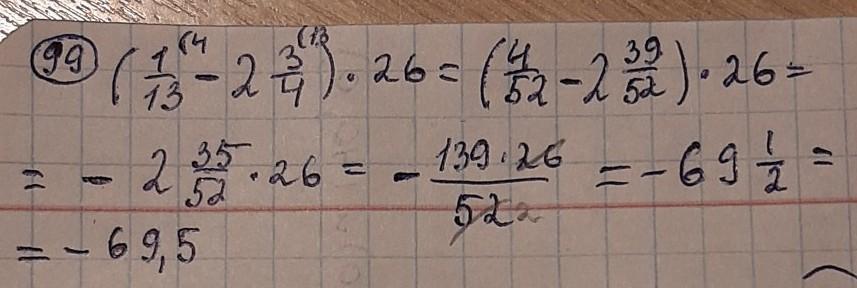 99 (1/13 (4 - 2 3/4 (13) · 26 = (4/52 - 2 39/52) · 26 =
= - 2 35/52 · 26 = - 139 · 26/52 2 = - 69 1/2 =
= - 69,5